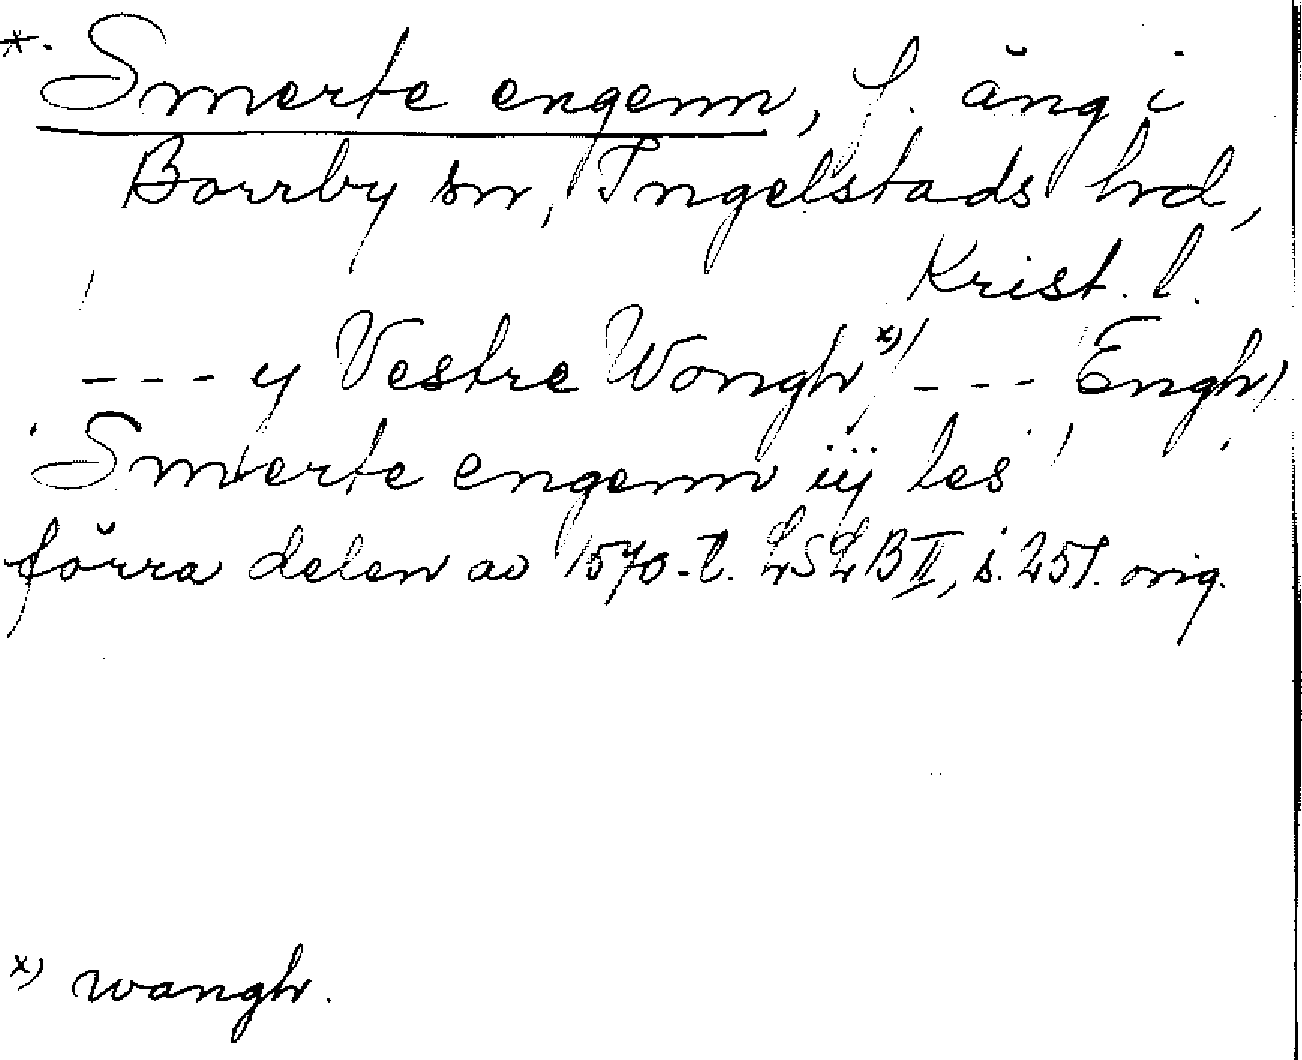 *. Smerte engenn, f. äng i
Borrby sn, Ingelstads hd,
Krist. l.
--- y Vestre Wongh x) / --- Engh,
Smerte engenn iij les
förra delen av 1570-t. LSLB II, s. 251. orig.
x) wangh.